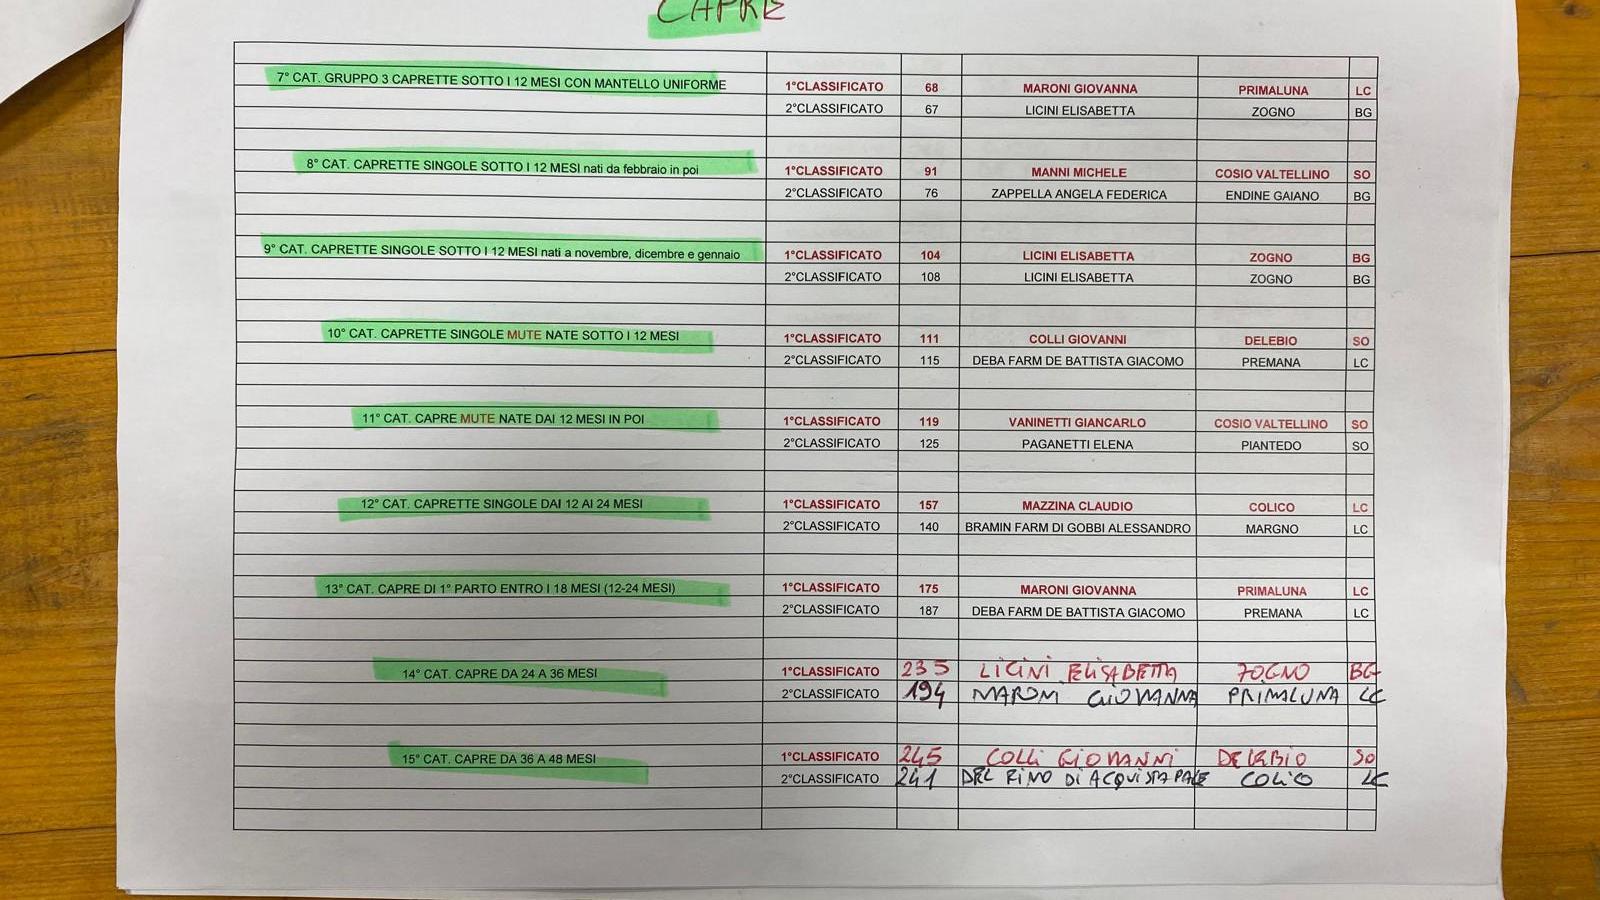 CAPRE
7° CAT. GRUPPO 3 CAPRETTE SOTTO I 12 MESI CON MANTELLO UNIFORME 1°CLASSIFICATO 68 MARONI GIOVANNA PRIMALUNA LC
2°CLASSIFICATO 67 LICINI ELISABETTA ZOGNO BG
8° CAT. CAPRETTE SINGOLE SOTTO I 12 MESI nati da febbraio in poi 1°CLASSIFICATO 91 MANNI MICHELE COSIO VALTELLINO SO
2°CLASSIFICATO 76 ZAPPELLA ANGELA FEDERICA ENDINE GAIANO BG
9° CAT. CAPRETTE SINGOLE SOTTO I 12 MESI nati a novembre, dicembre e gennaio 1°CLASSIFICATO 104 LICINI ELISABETTA ZOGNO BG
2°CLASSIFICATO 108 LICINI ELISABETTA ZOGNO BG
10° CAT. CAPRETTE SINGOLE MUTE NATE SOTTO I 12 MESI 1°CLASSIFICATO 111 COLLI GIOVANNI DELEBIO SO
2°CLASSIFICATO 115 DEBA FARM DE BATTISTA GIACOMO PREMANA LC
11° CAT. CAPRE MUTE NATE DAI 12 MESI IN POI 1°CLASSIFICATO 119 VANINETTI GIANCARLO COSIO VALTELLINO SO
2°CLASSIFICATO 125 PAGANETTI ELENA PIANTEDO SO
12° CAT. CAPRETTE SINGOLE DAI 12 AI 24 MESI 1°CLASSIFICATO 157 MAZZINA CLAUDIO COLICO LC
2°CLASSIFICATO 140 BRAMIN FARM DI GOBBI ALESSANDRO MARGNO LC
13° CAT. CAPRE DI 1° PARTO ENTRO I 18 MESI (12-24 MESI) 1°CLASSIFICATO 175 MARONI GIOVANNA PRIMALUNA LC
2°CLASSIFICATO 187 DEBA FARM DE BATTISTA GIACOMO PREMANA LC
14° CAT. CAPRE DA 24 A 36 MESI 1°CLASSIFICATO 235 LICINI ELISABETTA ZOGNO BG
2°CLASSIFICATO 194 MARONI GIOVANNA PRIMALUNA LC
15° CAT. CAPRE DA 36 A 48 MESI 1°CLASSIFICATO 245 COLLI GIOVANNI DELEBIO SO
2°CLASSIFICATO 241 DEL PINO DI ACQUISTAPACE COLICO LC